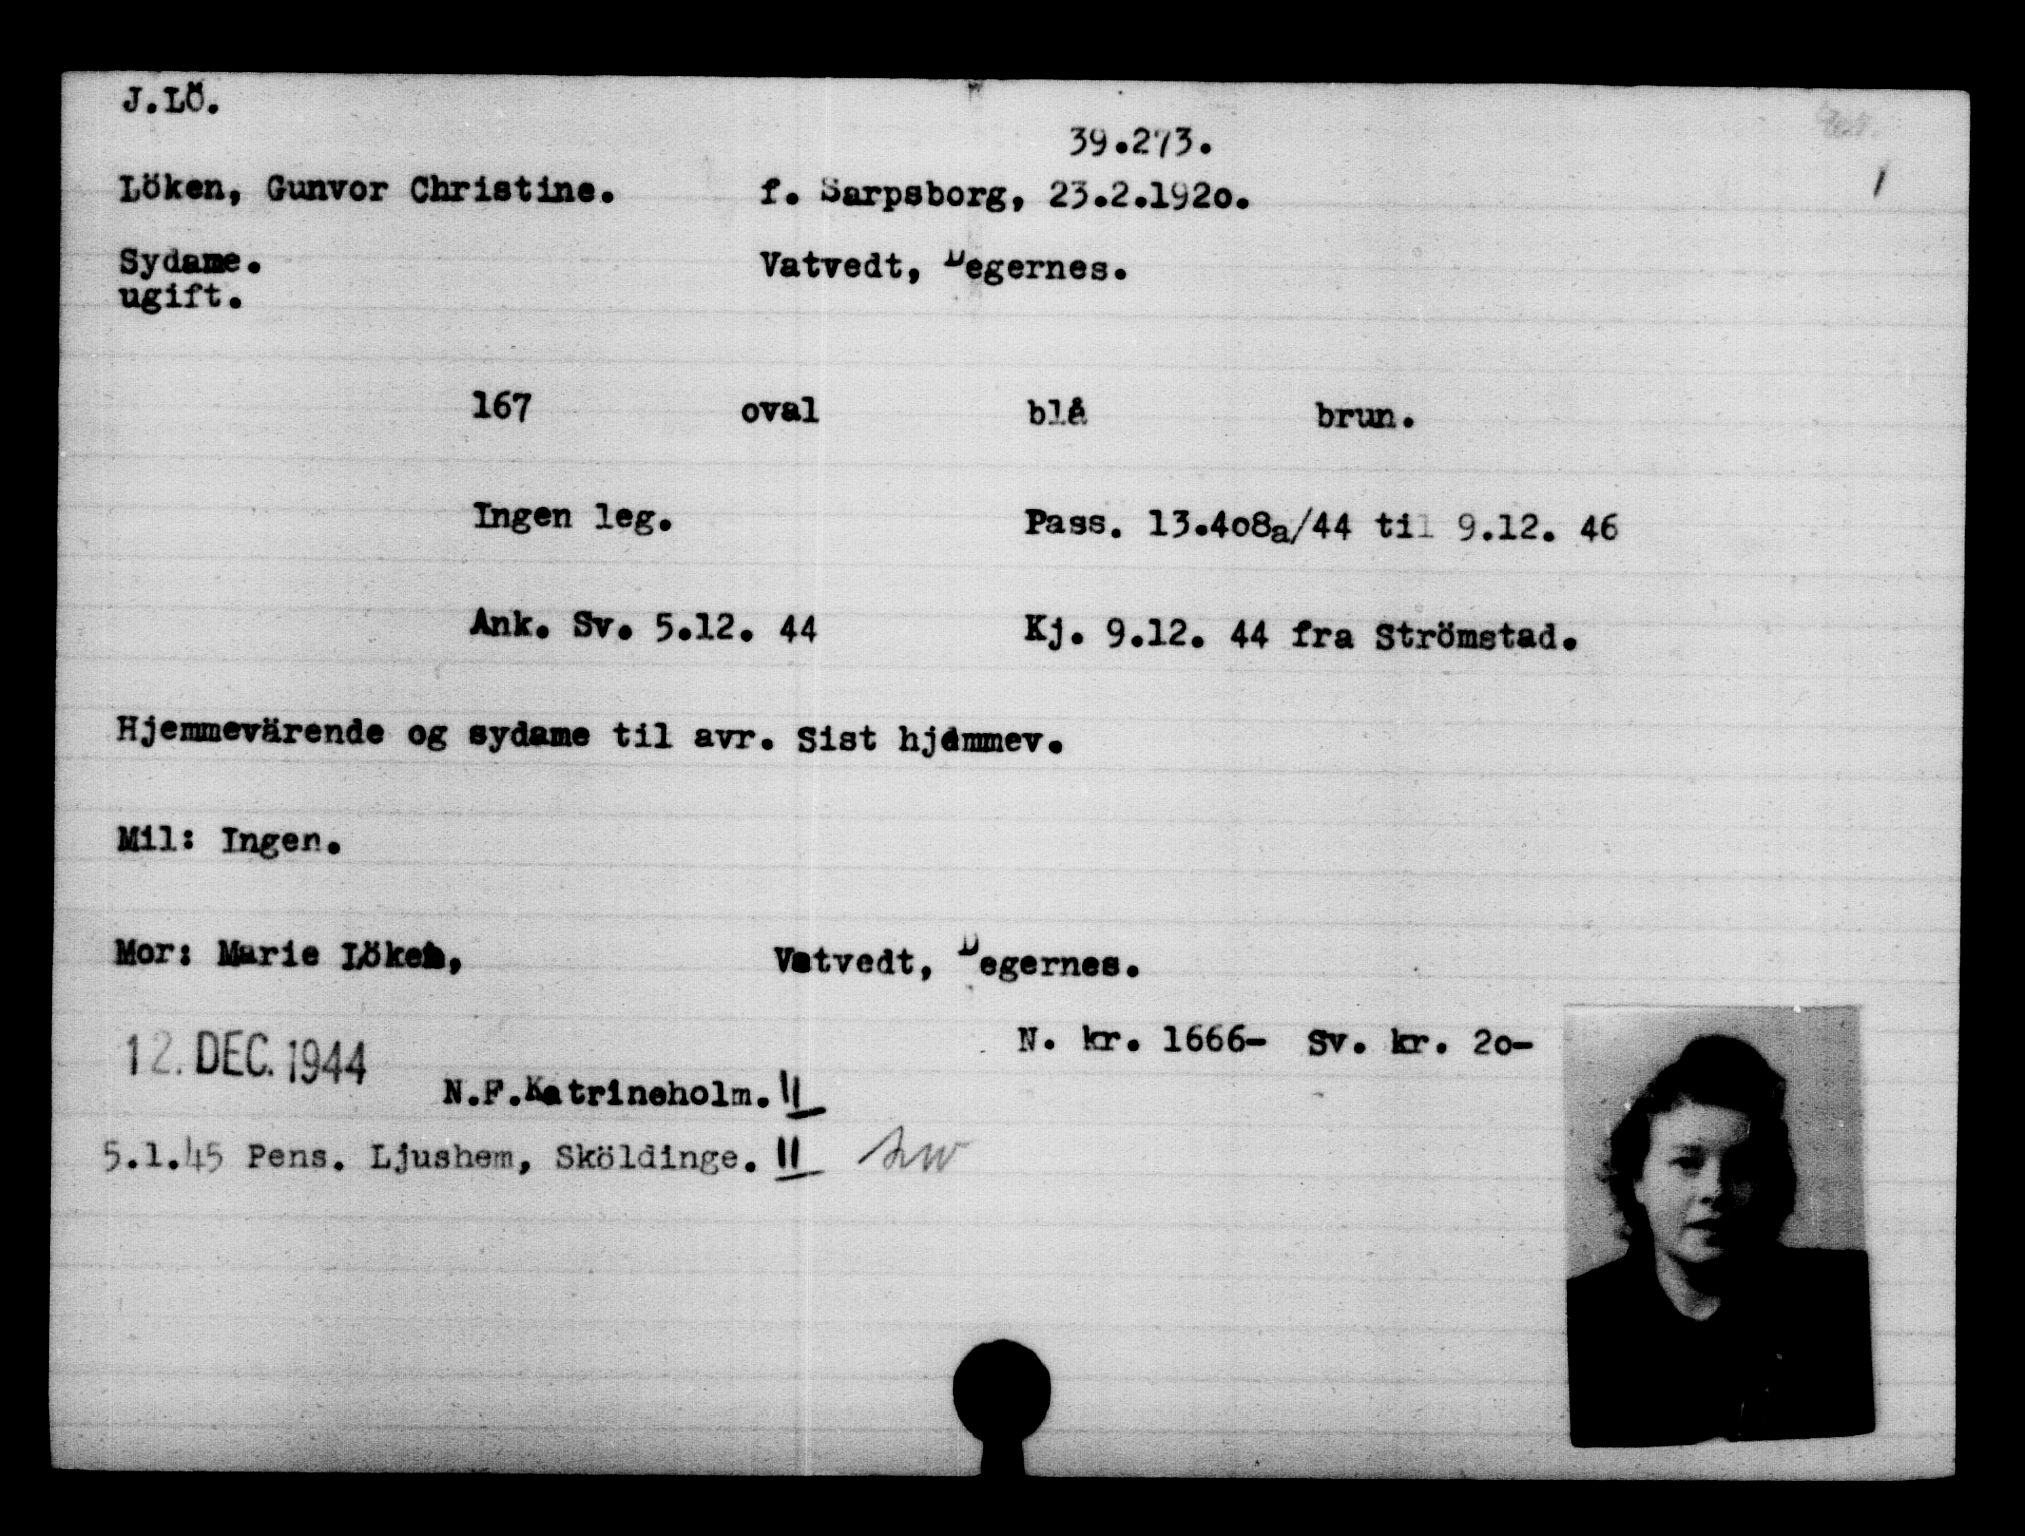 J.LÖ.
39.273.
1
Löken, Gunvor Christine. f. Sarpsborg, 23.2.192o.
Sydame. Vatvedt, Degernes.
ugift.
167 oval blå brun.
Ingen leg. Pass. 13.4o8a/44 til 9.12. 46
Ank. Sv. 5.12. 44 Kj. 9.12. 44 fra Strömstad.
Hjemmevärende og sydame til avr. Sist hjemmev.
Mil: Ingen.
Mor: Marie Löken, Vatvedt, Degernes.
N. kr. 1666- Sv. kr. 2o-
12. DEC. 1944
N.F.Katrineholm. II
5.1.45 Pens. Ljushem, Sköldinge. II